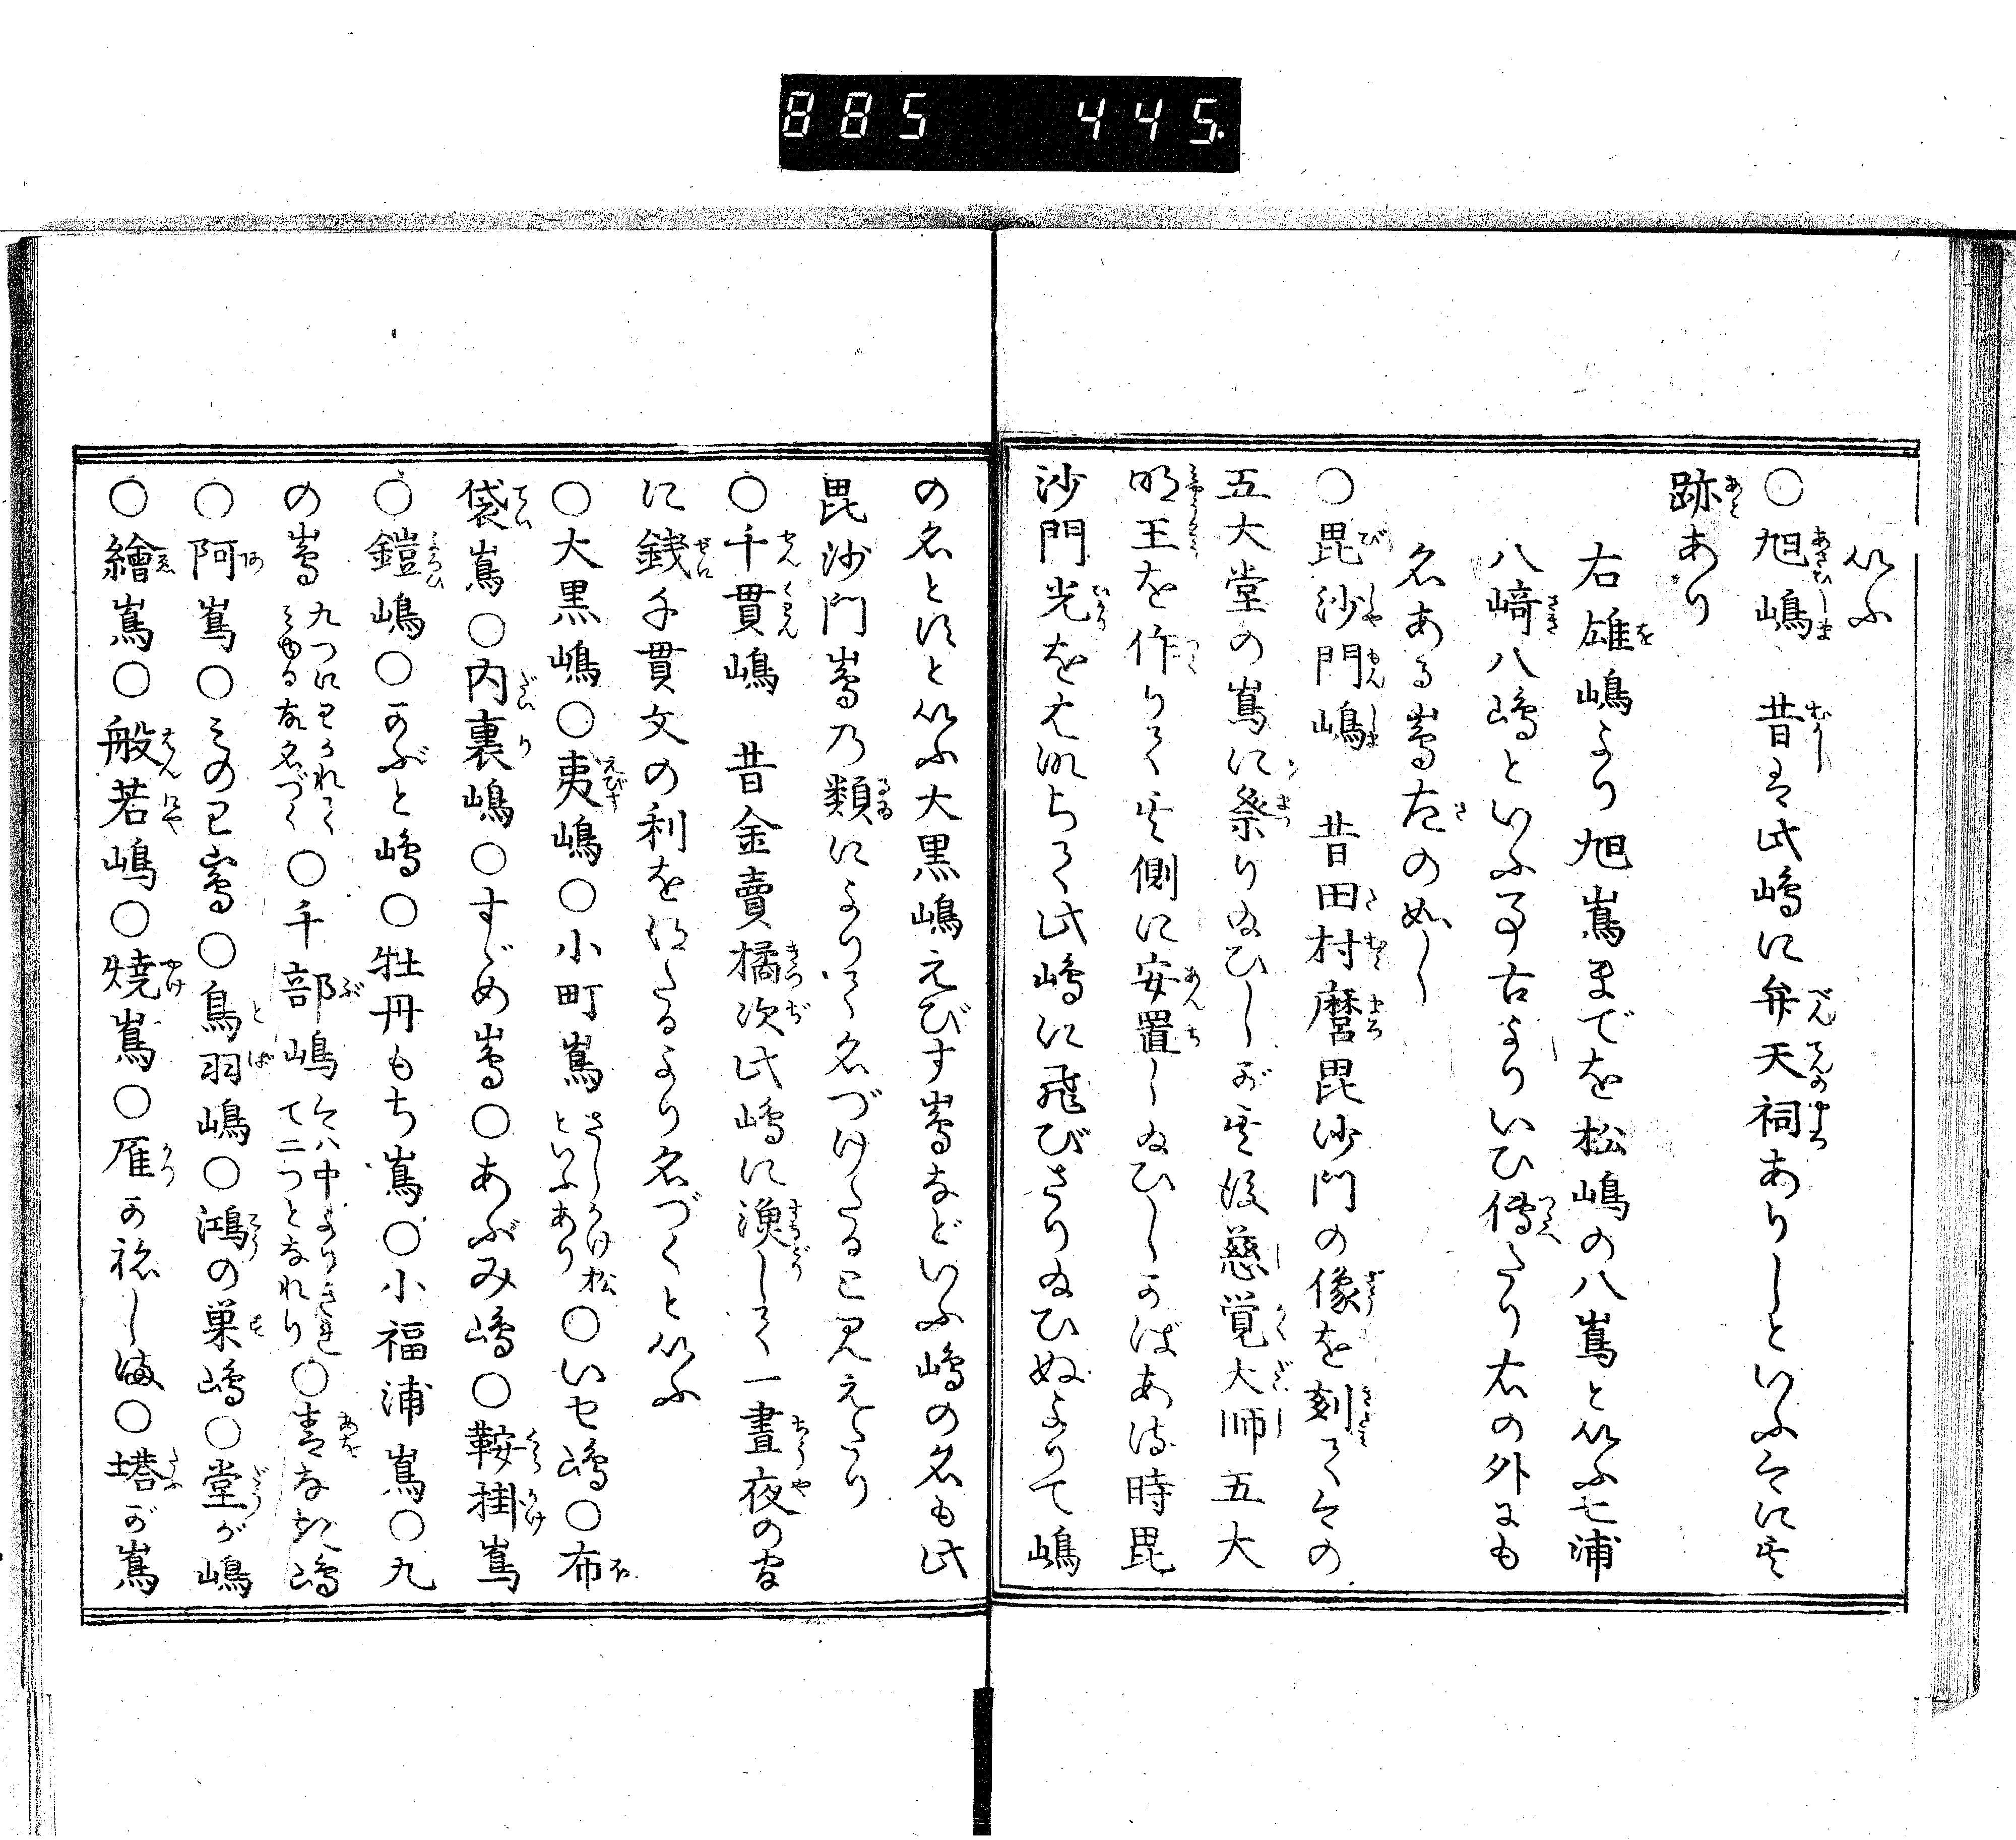 885 445.
以ふ
○旭嶋 昔は此嶋に弁天祠ありしといふ今に其
跡あり
右雄嶋より旭嶌までを松嶋の八嶌と以ふ七浦
八﨑八嶋といふ事古よりいひ傳たり右の外にも
名ある嶌左の如し
○毘沙門嶋 昔田村麿毘沙門の像を刻て今の
五大堂の嶌に祭り給ひしが其後慈覚大師五大
明王を作りて其側に安置し給ひしかばある時毘
沙門光をはなちて此嶋に飛びさり給ひぬよりて嶋
の名とすと以ふ大黒嶋えびす嶌などいふ嶋の名も此
毘沙門嶌乃類によりて名づけたると見えたり
○千貫嶋 昔金賣橘次此嶋に漁して一晝夜の間
に銭千貫文の利を得たるより名づくと以ふ
○大黒嶋○夷嶋○小町嶌さしかけ松といふあり○いせ嶋○布
袋嶌○内裏嶋○すゞめ嶌○あぶみ嶋○鞍掛嶌
○鎧嶋○かぶと嶋○牡丹もち嶌○小福浦嶌○九
の嶌九つにわかれてみゆる故名づく○千部嶋今ハ中よりきれて二つとなれり○青なき嶋
○阿嶌○みのわ嶌○鳥羽嶋○鴻の巣嶋○堂が嶋
○繪嶌○般若嶋○焼嶌○雁かねしま○塔が嶌